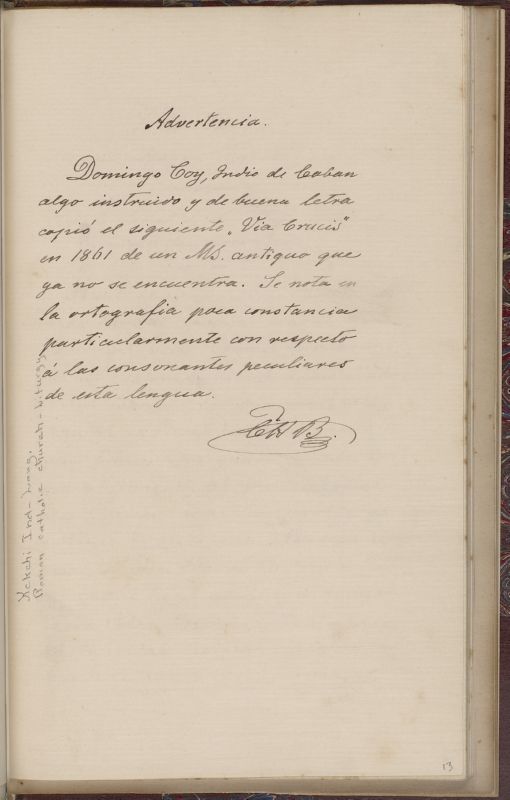 Advertencia.
Domingo Coy, Indio de Coban
algo instruido y de buena letra
copió el siguiente „Via Crucis"
en 1861 de un Ms. antiguo que
ya no se encuentra. Se nota en
la ortografia poca constancia
particularmente con respecto
á las consonantes peculiares
de esta lengua.
CHB.
Kekchi Ind- Lang.
Roman catholic church - Liturgy
13